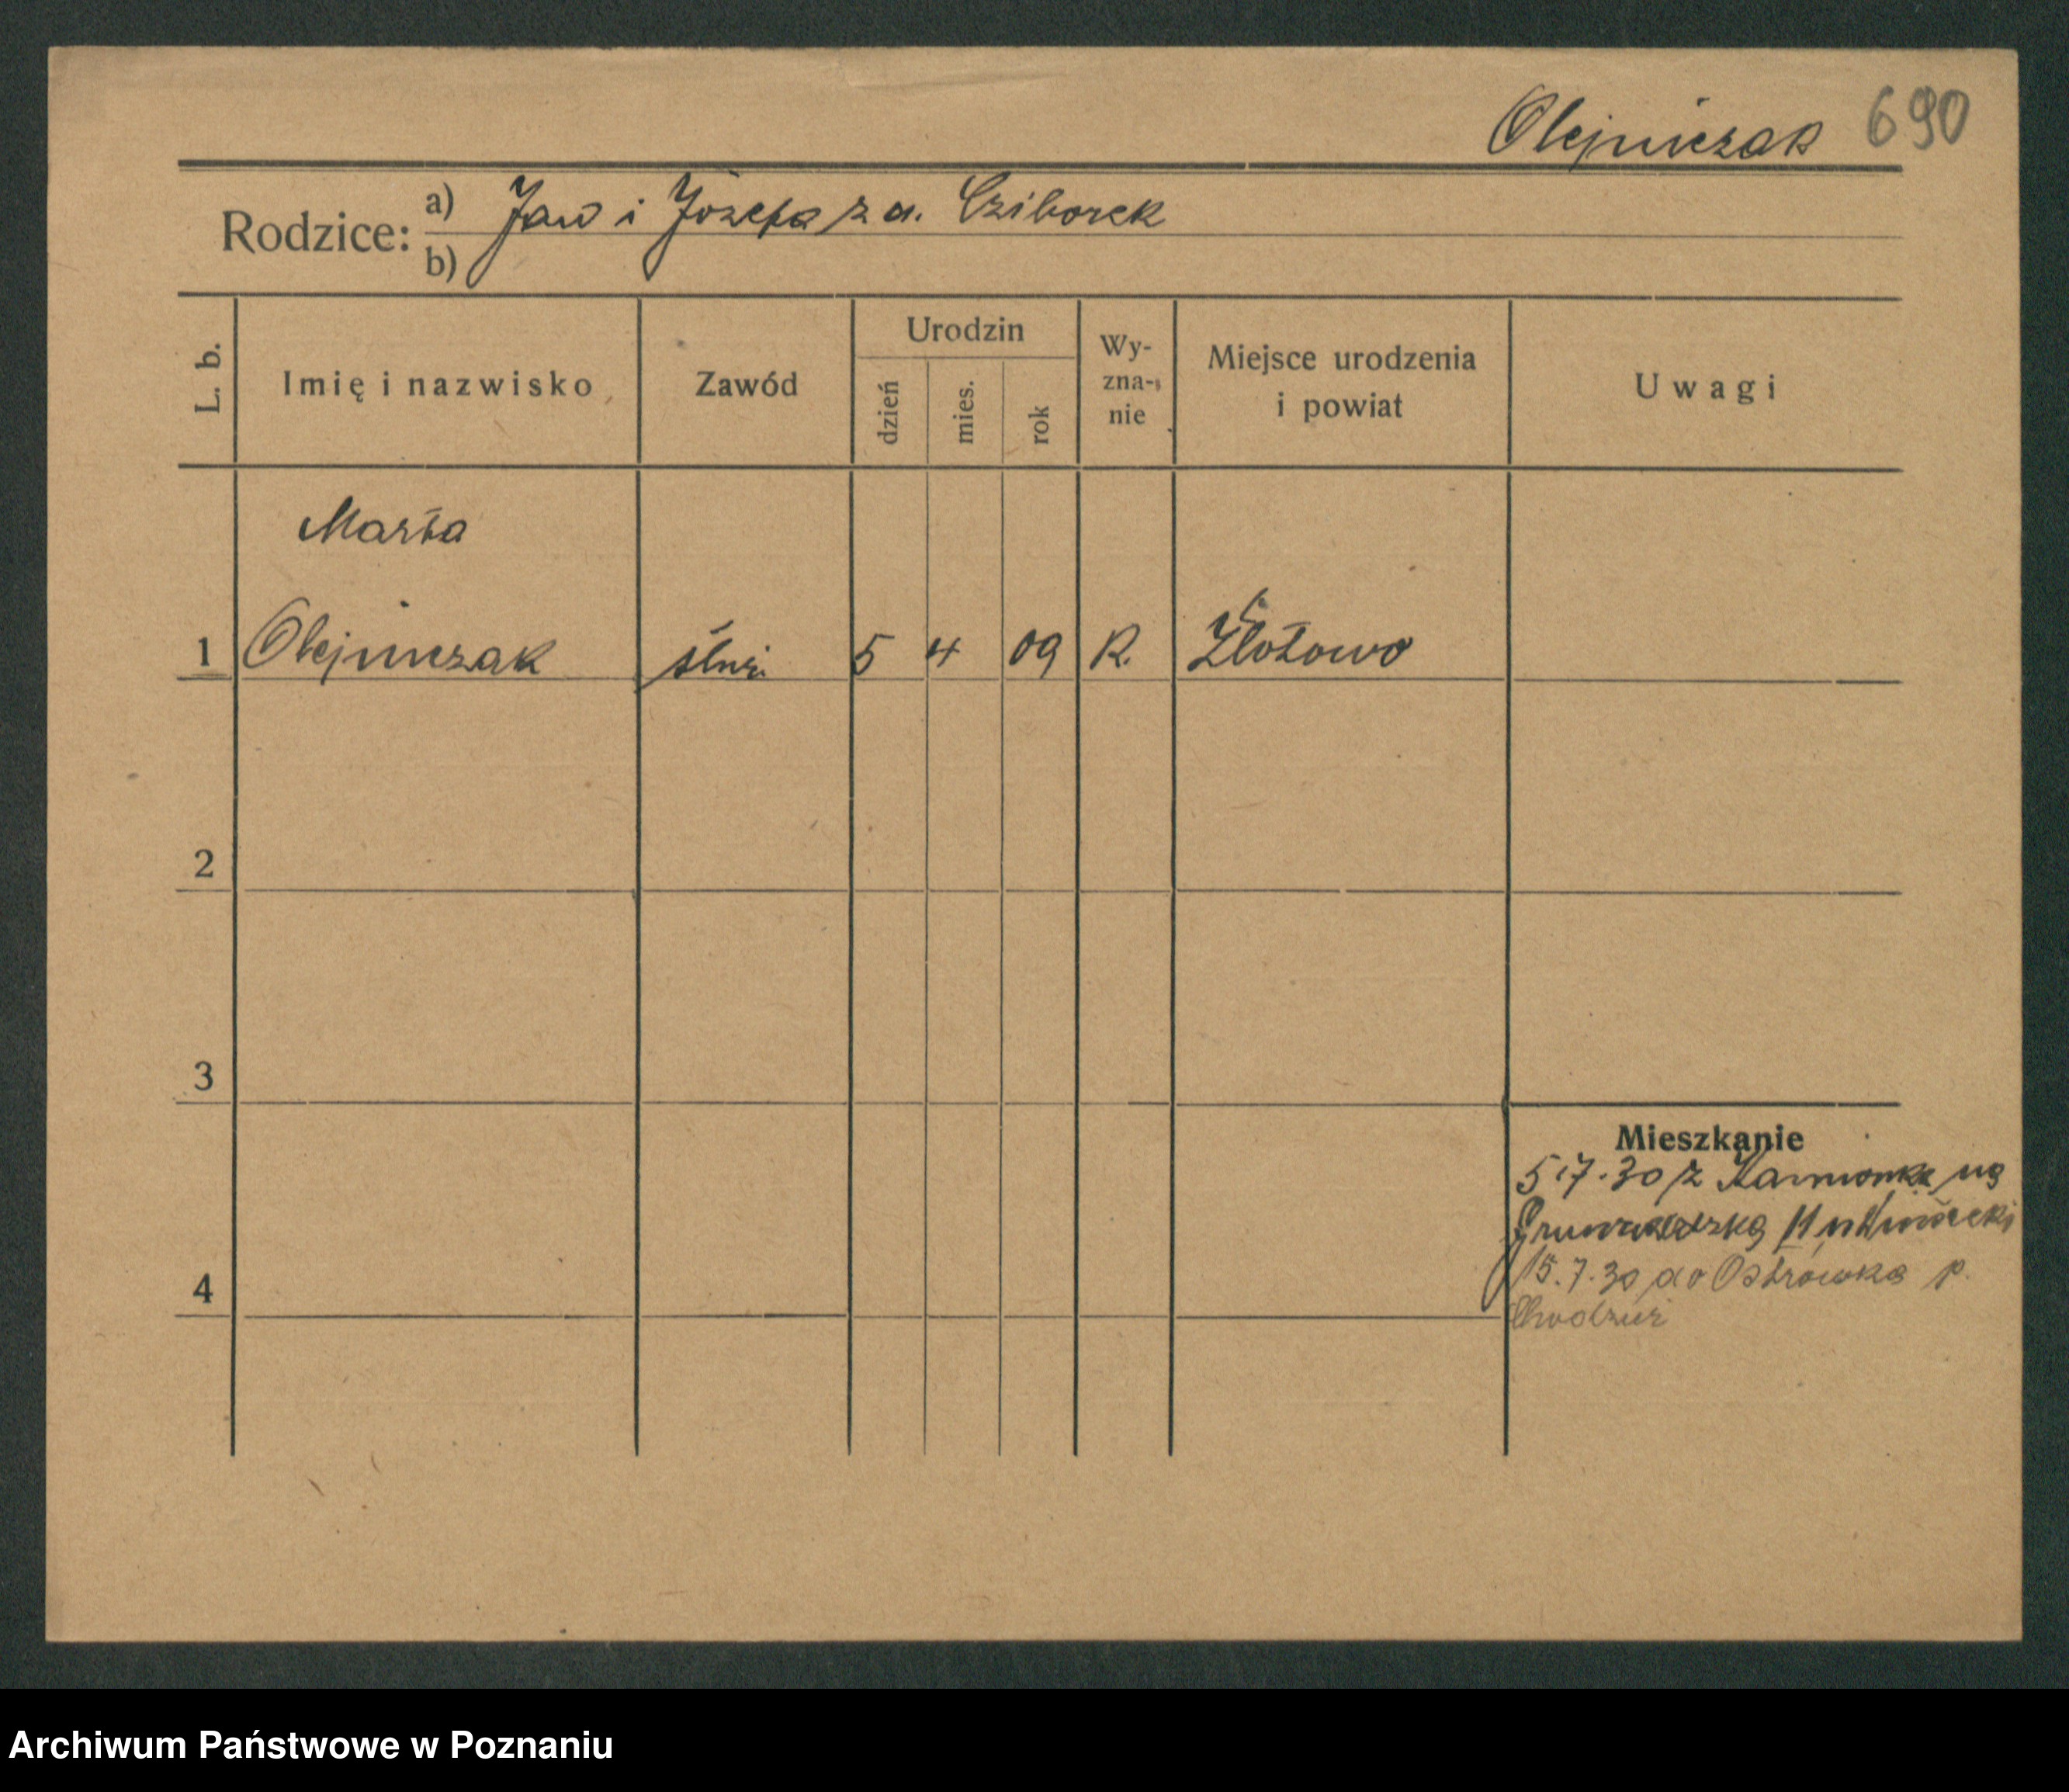 Olejniczak 690
Rodzice: a) Jan i Józefa z d. Cziborek
b)
L. b. Imię i nazwisko Zawód Urodzin dzień mies. rok Wy-zna-nie Miejsce urodzenia i powiat Uwagi
Marta
1 Olejniczak służ. 5 4 09 R. Złotowo
2
3
Mieszkanie
5.7.30 z Kamionki na
Grunwaldzką 11
15.7.30 do Ostrówka p.
4
Chodzież
Archiwum Państwowe w Poznaniu